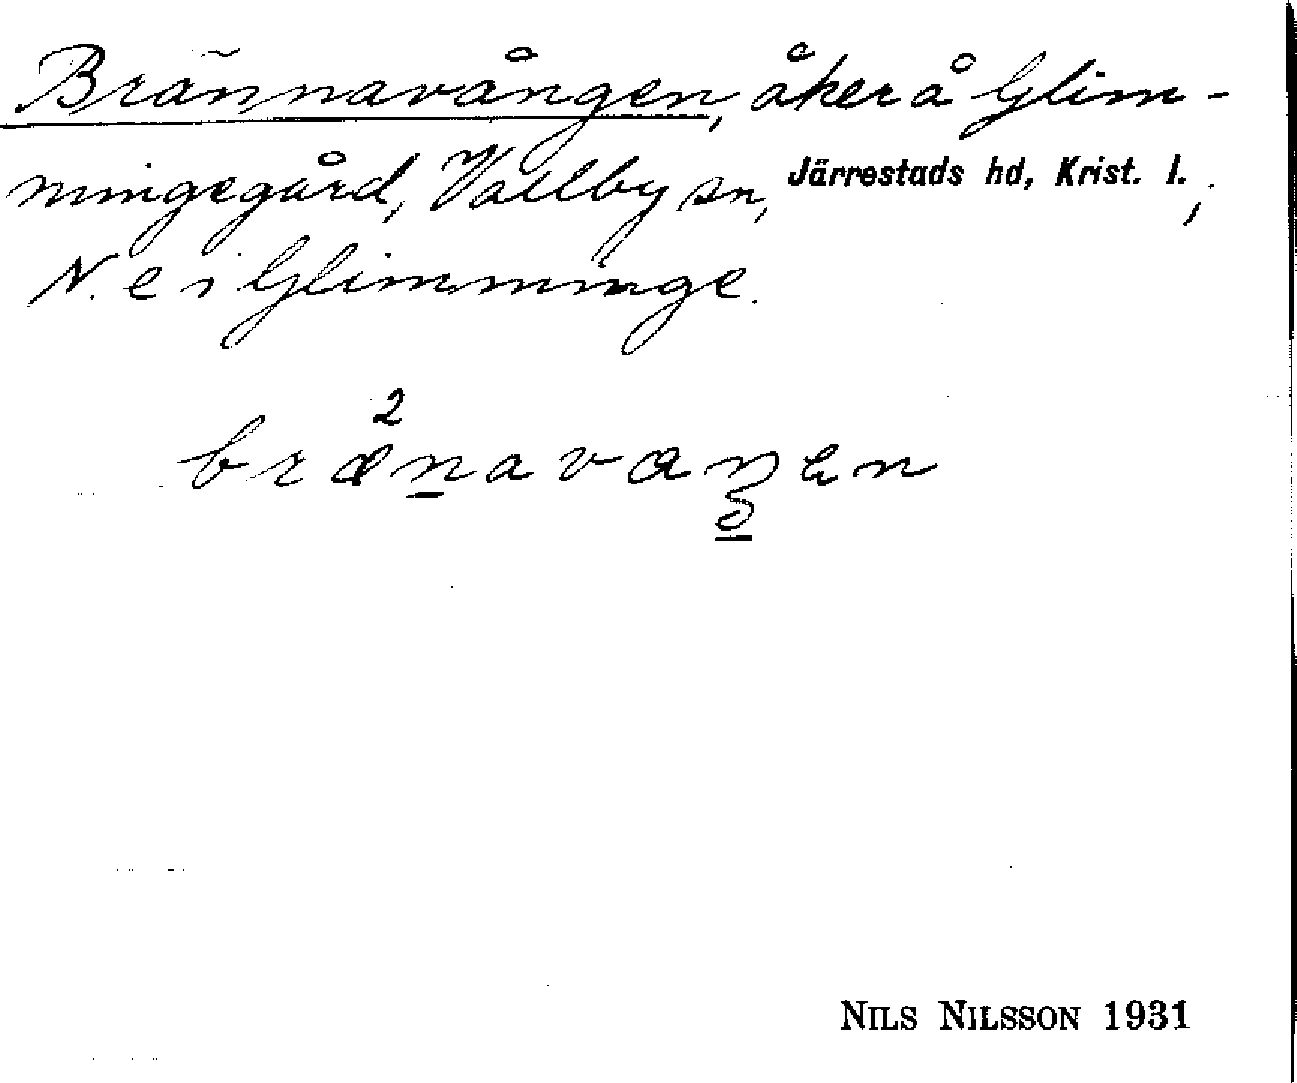 Brännavången, åker å Glim-
mingegård, Vallby sn, Järrestads hd, Krist. l.,
N. e i Glimminge.
2
brænavaŋen
NILS NILSSON 1931